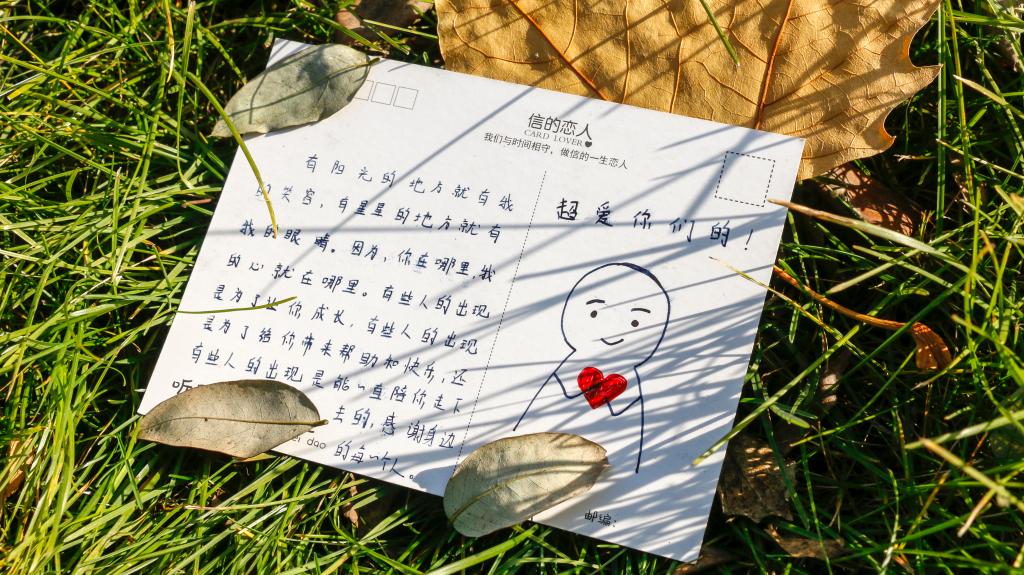 信的恋人
CARD LOVER
我们与时间相守，做信的一生恋人
有阳光的地方就有我
的笑容，有星星的地方就有
我的眼睛。因为，你在哪里，我
的心就在哪里。有些人的出现
是为了让你成长，有些人的出现
是为了给你带来帮助和快乐，还
有些人的出现是能一直陪你走下
去的，感谢身边
的每一个人。
听
dao
超爱你们的！
邮编：